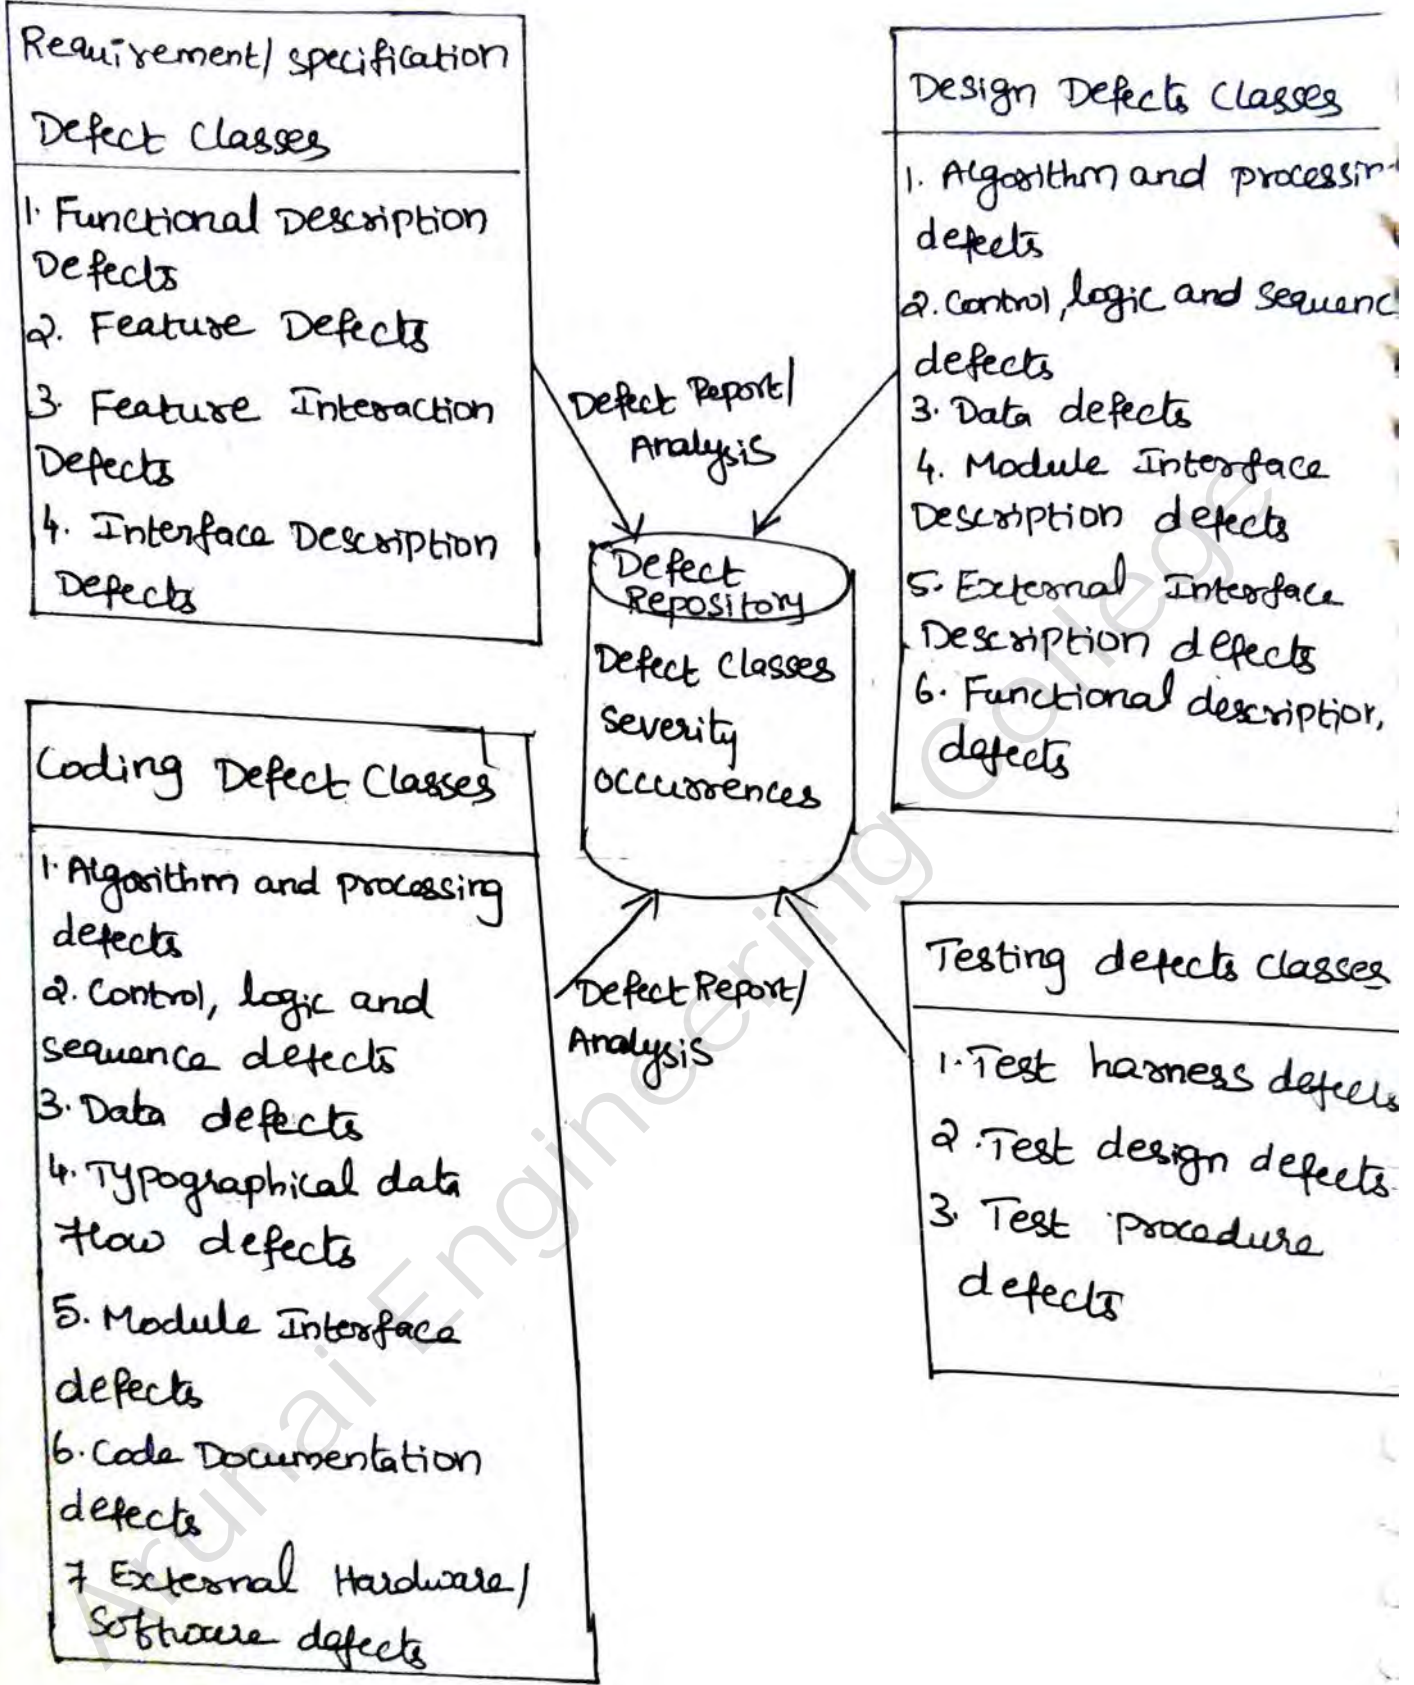 Requirement/ specification
Defect Classes
1. Functional Description
Defects
2. Feature Defects
3. Feature Interaction
Defects
4. Interface Description
Defects
Design Defects Classes
1. Algorithm and processin
defects
2. Control, logic and sequenc
defects
3. Data defects
4. Module Interface
Description defects
5. External Interface
Description defects
6. Functional description,
defects
Defect Report/
Analysis
Defect
Repository
Defect Classes
severity
occurrences
Coding Defect Classes
1. Algorithm and processing
defects
2. Control, logic and
sequence defects
3. Data defects
4. Typographical data
flow defects
5. Module Interface
defects
6. Code Documentation
defects
7 External Hardware/
Software defects
Defect Report/
Analysis
Testing defects classes
1. Test harness defects
2. Test design defects
3. Test procedure
defects
Arunai Engineering College